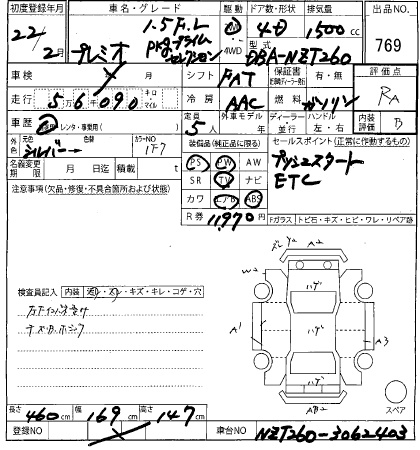 初度登録年月 車名・グレード 駆動 ドア数・形状 排気量 出品NO.
22/2月 プレミオ 1.5 F.L プライムセレクション 4WD 4D 1500cc 769
型式 DBA-NZT260
車検 シフト FAT 保証書 有・無 評価点 RA
走行 56,090 キロ マイル 冷房 AAC 燃料 ガソリン
車歴 レンタ・事業用 定員 5人 外車モデル 年 ディーラー 並行 ハンドル 左・右 内装 B
外色 シルバー 替色 カラーNO 1F7 装備品(純正品に限る) セールスポイント(正常に作動するもの)
名義変更期限 月 日迄 積載 t PS PW AW プッシュスタート
注意事項(欠品・修復・不具合箇所および状態) SR TV ナビ ETC
カワ エアB ABS
R券 11,970円 Fガラス トビ石・キズ・ヒビ・ワレ・リペア跡
検査員記入 内装 キズ・キレ・コゲ・穴
W2 A2 ハゲ
A1 ハゲ A3
ハゲ スペア
長さ 460cm 幅 169cm 高さ 147cm
登録NO 車台NO NZT260-3062403